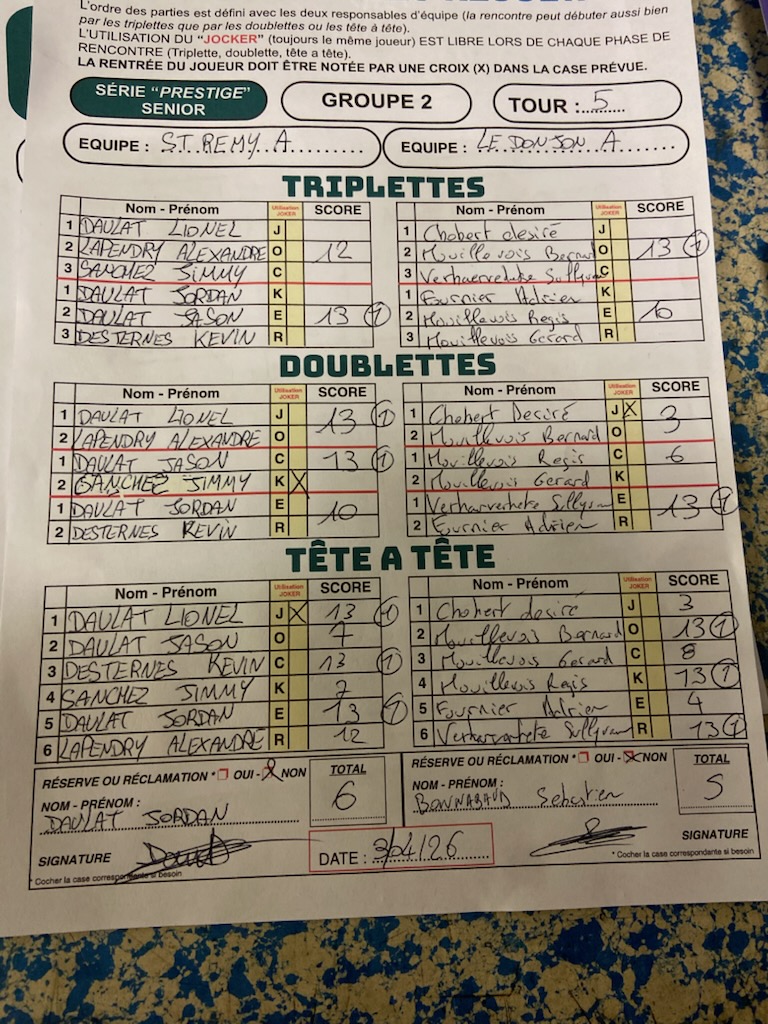 L'ordre des parties est défini avec les deux responsables d'équipe (la rencontre peut débuter aussi bien
par les triplettes que par les doublettes ou les tête à tête).
L'UTILISATION DU "JOCKER" (toujours le même joueur) EST LIBRE LORS DE CHAQUE PHASE DE
RENCONTRE (Triplette, doublette, tête a tête).
LA RENTRÉE DU JOUEUR DOIT ÊTRE NOTÉE PAR UNE CROIX (X) DANS LA CASE PRÉVUE.
SÉRIE "PRESTIGE" SENIOR GROUPE 2 TOUR : 5
EQUIPE : ST REMY A EQUIPE : LE DONJON A
TRIPLETTES
Nom - Prénom Utilisation JOKER SCORE Nom - Prénom Utilisation JOKER SCORE
1 DAULAT LIONEL J 1 Chobert desiré J
2 LAPENDRY ALEXANDRE O 12 2 Mouillevois Bernard O 13 1
3 SANCHEZ JIMMY C 3 C
1 DAULAT JORDAN K 1 Fournier Adrien K
2 DAULAT JASON E 13 1 2 Mouillevois Regis E 10
3 DESTERNES KEVIN R 3 Mouillevois Gerard R
DOUBLETTES
Nom - Prénom Utilisation JOKER SCORE Nom - Prénom Utilisation JOKER SCORE
1 DAULAT LIONEL J 13 1 1 Chobert Desiré J X 3
2 LAPENDRY ALEXANDRE O 2 Mouillevois Bernard O
1 DAULAT JASON C 13 1 1 Mouillevois Regis C 6
2 SANCHEZ JIMMY K X 2 Mouillevois Gerard K
1 DAULAT JORDAN E 10 1 E 13 1
2 DESTERNES KEVIN R 2 Fournier Adrien R
TÊTE A TÊTE
Nom - Prénom Utilisation JOKER SCORE Nom - Prénom Utilisation JOKER SCORE
1 DAULAT LIONEL J X 13 1 1 Chobert desiré J 3
2 DAULAT JASON O 7 2 Mouillevois Bernard O 13 1
3 DESTERNES KEVIN C 13 1 3 Mouillevois Gerard C 8
4 SANCHEZ JIMMY K 7 4 Mouillevois Regis K 13 1
5 DAULAT JORDAN E 13 1 5 Fournier Adrien E 4
6 LAPENDRY ALEXANDRE R 12 6 R 13 1
RÉSERVE OU RÉCLAMATION * OUI - X NON TOTAL 6 RÉSERVE OU RÉCLAMATION * OUI - X NON TOTAL 5
NOM - PRÉNOM : NOM - PRÉNOM :
DAULAT JORDAN Sebastien
SIGNATURE DATE : 3/04/26 SIGNATURE
* Cocher la case correspondante si besoin * Cocher la case correspondante si besoin